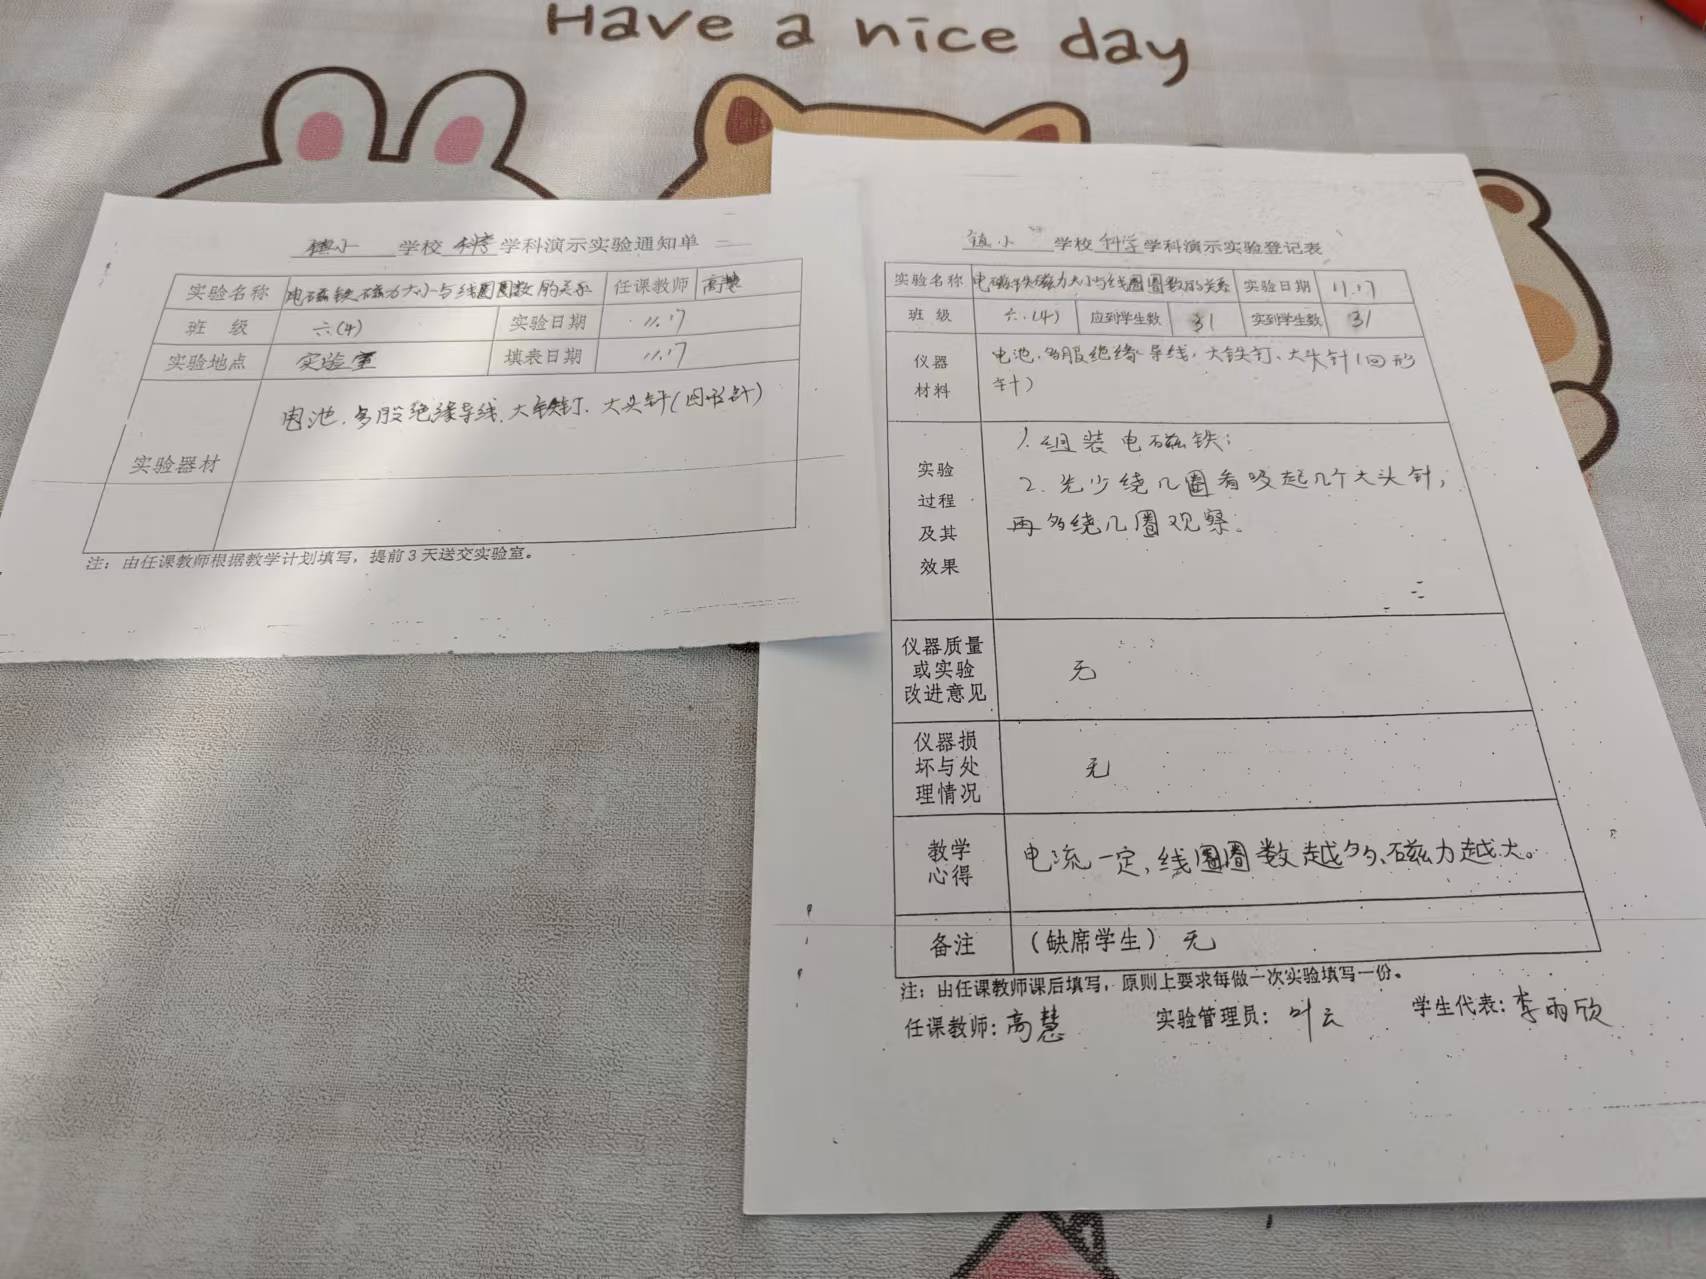 Have a nice day
镇小 学校 科学 学科演示实验通知单
实验名称 电磁铁磁力大小与线圈圈数的关系 任课教师 高慧
班 级 六(4) 实验日期 11.17
实验地点 实验室 填表日期 11.17
实验器材 电池、多股绝缘导线、大铁钉、大头针(回形针)
注：由任课教师根据教学计划填写，提前3天送交实验室。
镇小 学校 科学 学科演示实验登记表
实验名称 电磁铁磁力大小与线圈圈数的关系 实验日期 11.17
班 级 六.(4) 应到学生数 31 实到学生数 31
仪器材料 电池、多股绝缘导线、大铁钉、大头针(回形
针)
实验过程及其效果
1. 组装电磁铁；
2. 先少绕几圈看吸起几个大头针，
再多绕几圈观察。
仪器质量或实验改进意见 无
仪器损坏与处理情况 无
教学心得 电流一定、线圈圈数越多、磁力越大。
备注 （缺席学生） 无
注：由任课教师课后填写，原则上要求每做一次实验填写一份。
任课教师：高慧 实验管理员：叶云 学生代表：李雨欣